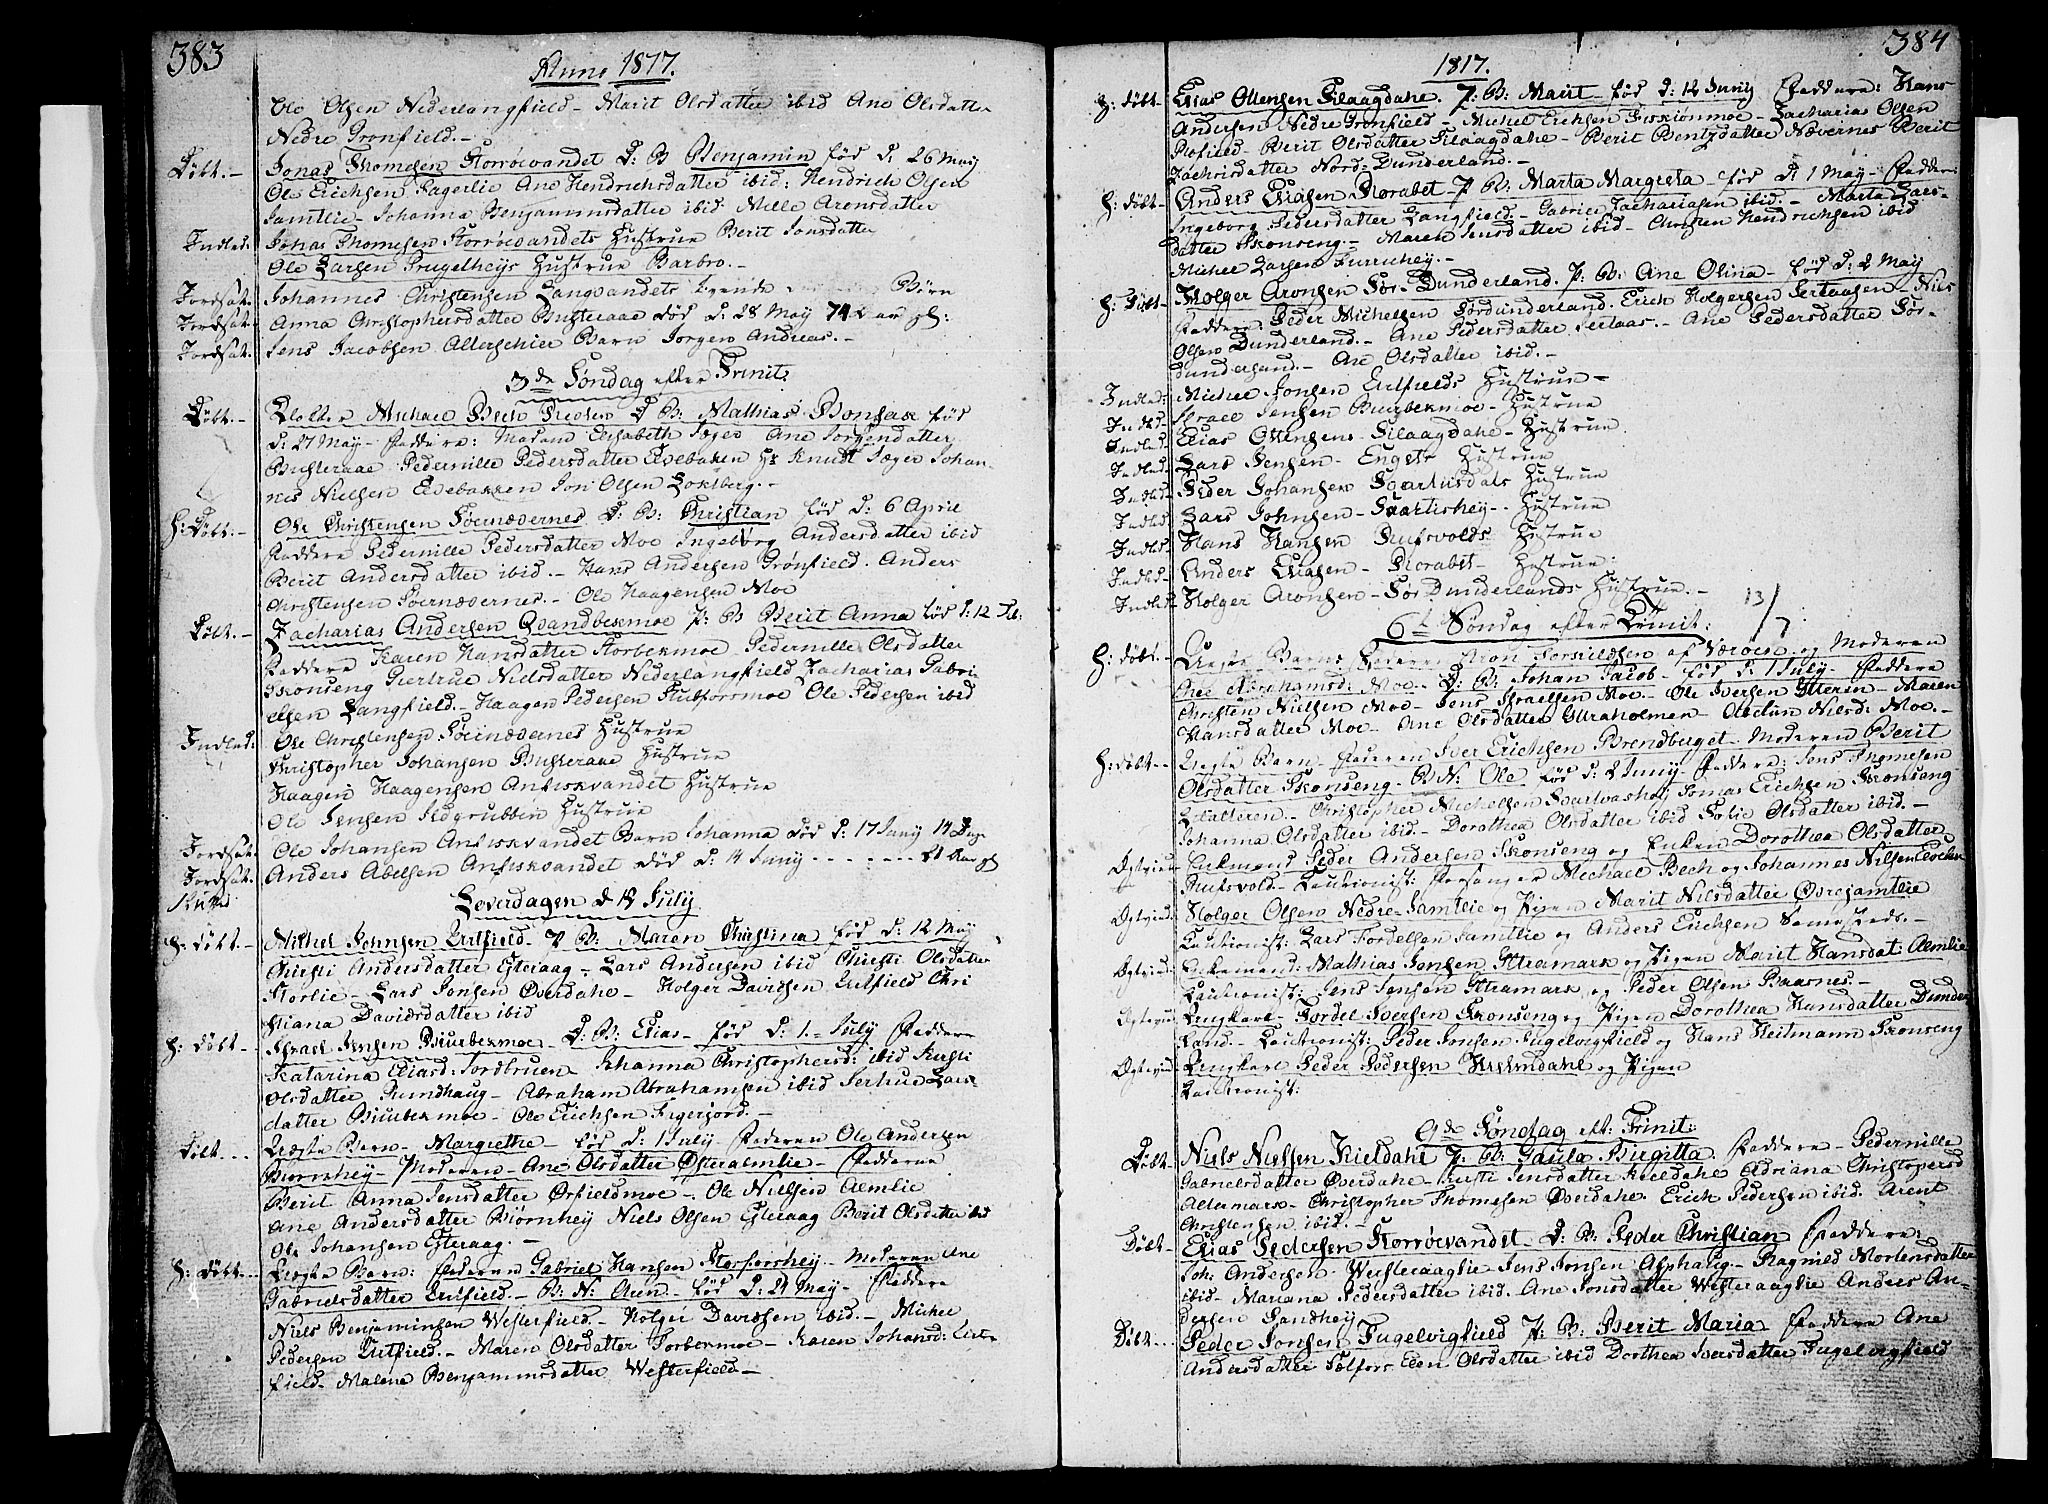 383
Anno 1817.
Ole Olsen Nederlangfield - Marit Olsdatter ibid Ane Olsdatter
Nedre Grønfield. -
Døbt. - Jonas Thomesen Storrøevandet D: B Benjamin fød d: 26 May
Ole Erichsen Fagerlie Ane Hendrichsdatter ibid: Hendrich Olsen
Jamtlie - Johanna Benjaminsdatter ibid Mille Arensdatter
Indled: Jonas Thomesen Storrøevandets Hustrue Berit Jonsdatter
Ole Larsen Prugelheys Hustrue Barbro. -
Jordsat. Johannes Christensen Langvandets Børn
Jordsat. Anna Christophersdatter Busteraae død d: 28 May 74
Jordsat. Jens Jacobsen Alterschier Barn Jørgen Andreas. -
3de Søndag efter Trinit:
Døbt. - Klokker Michael Bech D: B: Mathias Bonsak fød
d: 27 May - Faddere: Madam Elisabeth Jæger Ane Jørgensdatter
Busteraae Pedernille Pedersdatter Eidebaken Hr Knudt Jæger Johan-
nes Nielsen Eidebakken Jon Olsen Loktberg. -
H: Døbt. - Ole Christensen Sørnævernes D: B: Christian fød d: 6 April
Faddere Pedernille Pedersdatter Moe Ingeborg Andersdatter ibid
Berit Andersdatter ibid. - Hans Andersen Grønfield. Anders
Christensen Sørnævernes. - Ole Haagensen Moe
Døbt. - Zacharias Andersen Qvandbekmoe P: B Berit Anna fød d: 12
Faddere Karen Hansdatter Storbekmoe - Pedernille Olsdatter
Skonseng Giertrue Nielsdatter Nederlangfield Zacharias Gabri-
elsen Langfield. - Haagen Pedersen Stuphorsmoe Ole Pedersen ibid
Indled: Ole Christensen Sørnævernes Hustrue
Christopher Johansen Busteraae Hustrue
Haagen Haagensen Andfiskvandet Hustrue
Ole Jensen Sedgrubben Hustrue
Jordsat. Ole Johansen Andfiskvandet Barn Johanna død d: 17 Juny 14 Dage
Jordsat. Anders Abelsen Anfiskvandet død d: 14 Juny - - - - - - 21 Aar gl
Løverdagen d 12 July
H: Døbt - Michel Johnsen Urtfield - P B: Maren Christina fød d: 12 May
Christi Andersdatter Esteraag - Lars Andersen ibid Christi Olsdatter
Storlie - Lars Jonsen Øverdahl - Holger Davidsen Urtfield Chri
stiana Davidsdatter ibid
H: Døbt - Israel Jensen Biurbekmoe - D: B: Elias - fød d: 1 - July Faddere
Katarina Eliasd: Jordbruen - Johanna Christophersd: ibid Kirsti
Olsdatter Rundhaug - Abraham Abrahamsen ibid Lars
datter Biurbekmoe - Ole Erichsen Fagerjord. -
Døbt - - - Uægte Barn - Margrethe - fød d: 1 July - Faderen Ole Andersen
Biørnhey - Moderen - Ane Olsdatter Østeralmlie - Fadderne
Berit Anna Jensdatter Ørfieldmoe - Ole Nielsen Almlie
Ane Andersdatter Biørnhey Niels Olsen Esteraag Berit Olsdatter ibid
Ole Johansen Esteraag. -
H: Døbt - - - Uægte Barn: Faderen Gabriel Hansen Storforshey - Moderen Ane
Gabrielsdatter Urtfield. - B: N: Aun - fød d: 24 May - Faddere
Niels Benjaminsen Westerfield. - Holger Davidsen ibid - Michel
Pedersen Urtfield. - Maren Olsdatter Torbekmoe - Karen Johansd: Urt-
field - Malene Benjaminsdatter Westerfield -
384
1817.
H: Døbt - Elias Ottensen Pilaagdahl. P: B: Marit fød d: 12 Juny Faddere: Hans
Andersen Nedre Grønfield - Michel Erichsen Fiskiønmoe - Zacharias Olsen
Plofield - Berit Olsdatter Pilaagdahl - Berit Bentzdatter Nævernes Berit
Zachrisdatter Nord-Dunderland. -
H: Døbt - Anders Eliasen Rorabet P B: Marta Margreta - fød d: 1 May - Faddere:
Ingeborg Pedersdatter Langfield - Gabriel Zachariasen ibid. - Marta Lars-
datter Skonseng. - Maren Jensdatter ibid - Christen Hendrichsen ibid
Michel Larsen Furruhey. -
H: Døbt - Holger Aronsen Sør-Dunderland. P: B: Ane Olina - fød d: 2 May
Faddere: Peder Michelsen Sørdunderland. Erich Holgersen - Niels
Olsen Dunderland. - Ane Pedersdatter - Ane Pedersdatter Sør-
dunderland. - Ane Olsdatter ibid. -
Indled - Michel Jonsen Urtfields Hustrue -
Indled - Israel Jensen Biurbekmoe - Hustrue
Indled - Elias Ottensens Pilaagdahl - Hustrue
Indled - Lars Jensen - Enget Hustrue
Indled - Peder Johansen Svartisdals Hustrue
Indled Lars Johnsen - Svartishey - Hustrue
Indled - Hans Hansen Rufsvolds Hustrue
Indled - Anders Eliasen - Rorabet - Hustrue:
Indled - Holger Aronsen - Sør Dunderlands Hustrue. -
13/7
6te Søndag efter Trinit:
H: Døbt. - Uægte Barns Faderen Aron Torkildsen af Værøen og Moderen
Abrahamsd: Moe. - D: B: Johan Jacob - fød d: 1 July - Faddere
Christen Nielsen Moe - Jens Israelsen Moe. - Ole Iversen Ytteren - Maren
Hansdatter Moe - Ane Olsdatter Yttraholmen - Nielsd: Moe. -
H: Døbt - Uægte Barn - Faderen Iver Erichsen Brendberget - Moderen Berit
Olsdatter Skonseng - B: N: Ole fød d: 2 Juny - Faddere: Jens Thomesen
Lilalteren. - Christopher Michelsen Svartvashei Tomas Erichsen Skonseng
Johanna Olsdatter ibid - Dorothea Olsdatter ibid Sofie Olsdatter ibid. -
Ægtevied Enkemand Peder Andersen Skonseng og Enken Dorothea Olsdatter
Rufsvold - Cautionist: Forsanger Michael Bech og Johannes Nilsen
Ægtevied Holger Olsen Nedre-Jamtlie og Pigen Marit Nilsdatter Øvrejamtlie
Cautionist: Lars Tordelsen Jamtlie og Anders Erichsen Sammesteds. -
Ægtevied Enkemand: Mathias Jonsen Yttramark og Pigen Marit Hansdat: Almlie
Cautionist: Jens Jensen Yttramark og Peder Olsen Baasnes. -
Ægtevied Ungkarl - Tordel Iversen Skonseng og Pigen Dorothea Hansdatter Dunder
Land. - Cautionist: Peder Jonsen Fugelvigfield og Hans Heitmann Skonseng
Ægtevied Ungkarl Peder Pedersen og Pigen
Cautionist:
9de Søndag eft: Trinit:
Døbt - Niels Nielsen Kieldahl P: B: Paula Birgitta - Faddere - Pedernille
Gabrielsdatter Øverdahl - Kirsti Jensdatter Kieldahl Adriana Christopersd
Altermark - Christopher Thomesen Øverdahl Erich Pedersen ibid. Arent
Christensen ibid. -
Døbt - Elias Pedersen Storrøevandet - D: B: Peder Christian Faddere:
Joh: Andersen - Westeraaglie Jens Jonsen Asphaug - Ragnild Mortensdatter
ibid - Mariana Pedersdatter ibid. Ane Jonsdatter Westeraaglie Anders An-
dersen Sandhey
Døbt - Peder Jonsen Fugelvigfield P: B: Berit Maria Faddere Ane
Andersdatter Sølfors Olsdatter ibid Dorthea Iversdatter Fugelvigfield